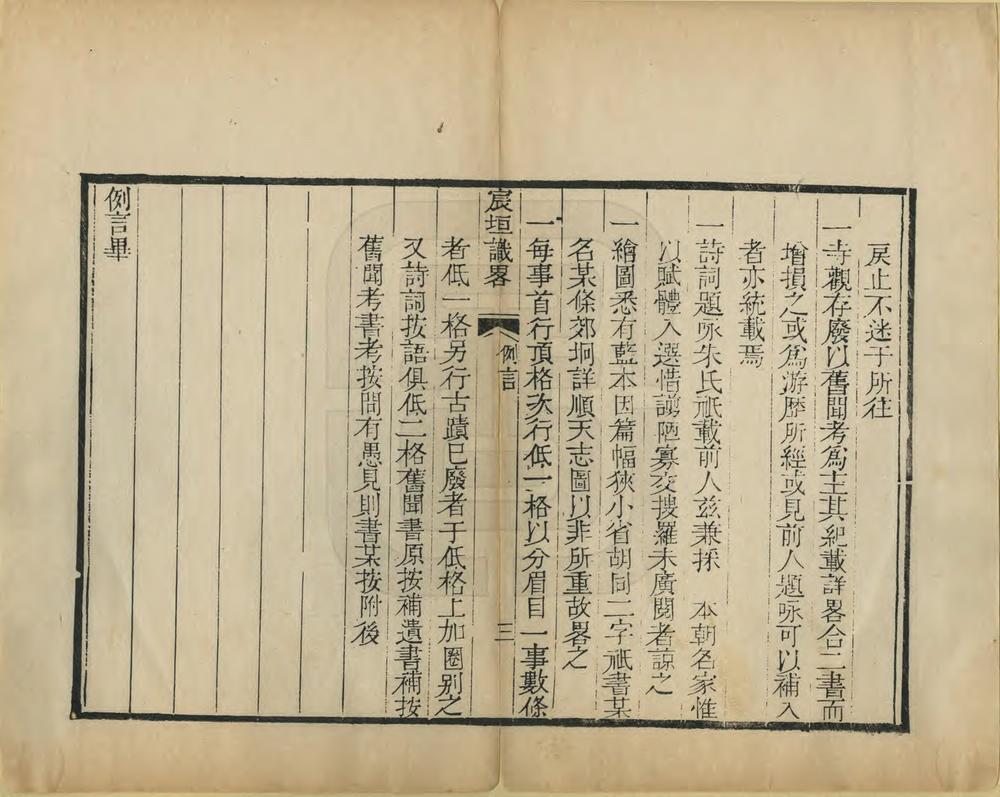 戾止不迷于所往
一寺觀存廢以舊聞考爲主其紀載詳畧合二書而
增損之或爲游歷所經或見前人題咏可以補入
者亦統載焉
一詩詞題咏朱氏祇載前人兹兼採　本朝名家惟
以賦體入選惜謭陋寡交搜羅未廣閱者諒之
一繪圖悉有藍本因篇幅狹小省胡同二字祇書某
名某條郊坰詳順天志圖以非所重故畧之
一每事首行頂格次行低一格以分眉目一事數條
宸垣識畧　例言　三
者低一格另行古蹟已廢者于低格上加圈别之
又詩詞按語俱低二格舊聞書原按補遺書補按
舊聞考書考按間有愚見則書某按附後
例言畢